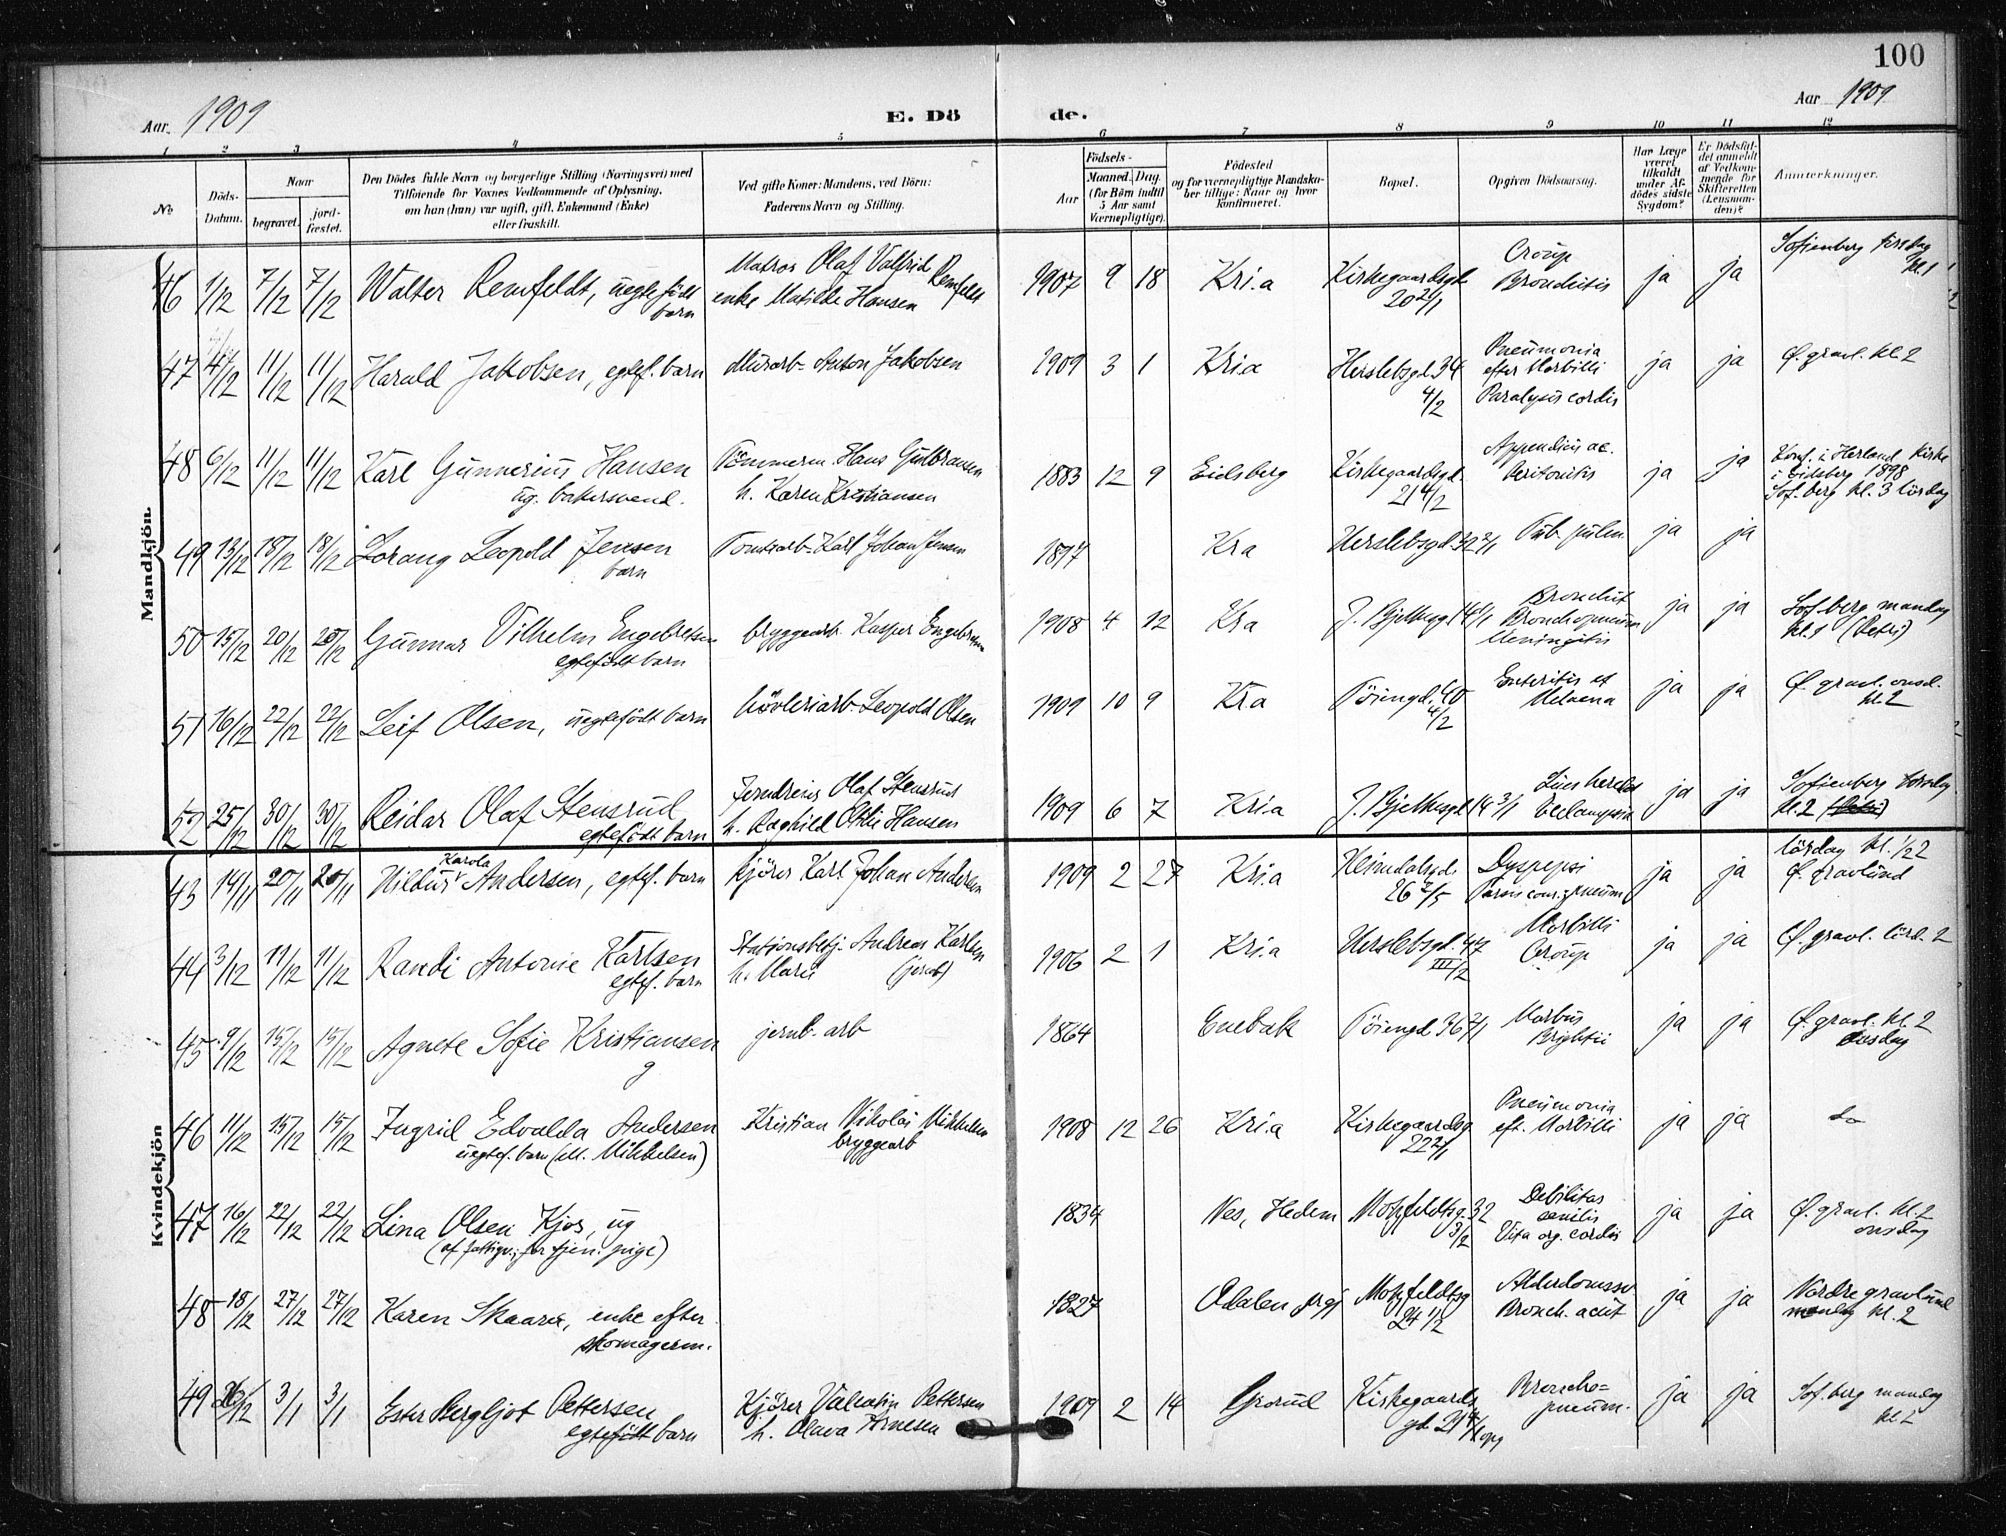 100
Aar 1909
E. Dö
de.
Aar 1909
1 2 3 4 5 6 7 8 9 10 11 12
No
Döds-
Datum.
Naar
begravet.
jord-
fæstet.
Den Dödes fulde Navn og borgerlige Stilling (Næringsvei) med
Tilföiende for Voxnes Vedkommende af Oplysning,
om han (hun) var ugift, gift, Enkemand (Enke)
eller fraskilt.
Ved gifte Koner: Mandens, ved Börn:
Faderens Navn og Stilling.
Födsels-
Aar
Maaned. Dag.
(for Börn indtil
5 Aar samt
Værnepligtige).
Födested
og for værnepligtige Mandska-
ber tillige: Naar og hvor
konfirmeret.
Bopæl.
Opgiven Dödsaarsag.
Har Læge
været
tilkaldt
under Af-
dödes sidste
Sygdom?
Er Dödsfal-
det anmeldt
af Vedkom-
mende for
Skifteretten
(Lensman-
den)?
Anmerkninger.
Mandkjön.
46 1/12 7/12 7/12 Walter Remfeldt, uegtefödt
barn
Matros Olaf Valfrid Remfeldt
enke Matilde Hansen
1907 9 18 Kri.a
Kirkegaardsgt
20 2/1
Croup
Bronchitis
ja ja
Sofienberg tirsdag
kl 1
47 4/12 11/12 11/12 Harald Jakobsen, egtef. barn
Murarb. Anton Jakobsen
1909 3 1 Kria
Herslebsgd. 34
4/2
Pneumonia
efter Morbilli
Paralysis cordis
ja ja
Ø. gravl. kl. 2
48 6/12 11/12 11/12 Karl Gunnerius Hansen
ug. bakersvend.
Tömmerm. Hans Gulbransen
h. Karen Kristiansen
1883 12 9 Eidsberg
Kirkegaardsgd.
21 4/2
Appendicis ac.
Peritonitis
ja ja
Konf. i Herland kirke
i Eidsberg 1898
Sof. berg kl. 3 lördag
49 13/12 18/12 18/12 Lorang Leopold Jensen
barn
Tomtearb. Karl Johan Jensen
1897 Kra
Herslebsgd. 32 2/1
Tub. pulm
ja ja
50 15/12 20/12 20/12 Gunnar Vilhelm Engebretsen
egtefödt barn
bryggearb. Kasper Engebretsen
1908 4 12 Kra
J. Bjelkesgd 14 1/1
Bronchit
Bronchopneum
Meningitis
ja ja
Sof. berg mandag
kl. 1 (Petri)
51 16/12 22/12 22/12 Leif Olsen, uegtefödt barn
hövleriarb. Leopold Olsen
1909 10 9 Kra
Töiengd. 40
4/2
Enteritis et
Melaena
ja ja
Ø. gravl. onsd.
kl. 2
52 25/12 30/12 30/12 Reidar Olaf Stensrud
egtefödt barn
Jerndreier Olaf Stensrud
h. Ragnhild Otilie Hansen
1909 6 7 Kri.a
J. Bjelkesgd 14 3/1
Lues hered
Eclampsia
ja ja
Sofienberg torsdag
kl. 2
Kvindekjön
43 14/11 20/11 20/11 Hildur Karola Andersen, egtef. barn
Kjörer Karl Johan Andersen
1909 2 27 Kri.a
Heimdalsgd.
26 2/5
Dyspepsi
ja ja
lördag kl. 1/2 2
Ø. gravlund
44 3/12 11/12 11/12 Randi Antonie Karlsen
egtef. barn
Stationsbetj. Andreas Karlsen
h. Marie (jernb)
1906 2 1 Kri.a
Herslebsgd. 47
III/2
Morbilli
Croup
ja ja
Ø. gravl. lörd. 2
45 9/12 15/12 15/12 Agnete Sofie Kristiansen
g
jernb. arb
1864 Enebak
Töiengd 36 2/1
Morbus
Brightii
ja ja
Ø. gravl. kl. 2
onsdag
46 11/12 15/12 15/12 Ingrid Edvalda Andersen
uegtef. barn (ell. Mikkelsen)
Kristian Nikolai Mikkelsen
bryggearb
1908 12 26 Kri.a
Kirkegaardsg
22 2/1
Pneumonia
eft. Morbilli
ja ja
do
47 16/12 22/12 22/12 Lina Olsen Kjos, ug
(af fattigv.; för tjen. pige)
1834 Nes, Hedem
Motzfeldtsg. 32
3/2
Debilitas
senilis
Vita org. cordis
ja ja
Ø. gravl. kl. 2
onsdag
48 18/12 27/12 27/12 Karen Skaara, enke efter
skomagerm.
1827 Odalen prgj
Motzfeldtsg
24 1/2
Alderdomssv
Bronch. acut
ja ja
Nordre gravlund
mandag kl. 2
49 26/12 3/1 3/1 Ester Bergljot Pettersen
egtefödt barn
Kjörer Valentin Pettersen
h. Olava Arnesen
1909 2 14 Grorud
Kirkegaards
gd. 21 4/1 opg
Broncho=
pneum.
ja ja
Sof. berg mandag
kl 2